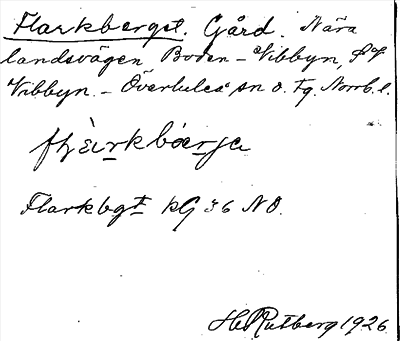 Flarkberget. Gård. Nära
landsvägen Boden - Vibbyn, SV
Vibbyn. - Överluleå sn o. tg. Norrb. l.
Flarkbgt kG 36 NO.
H. Rutberg 1926